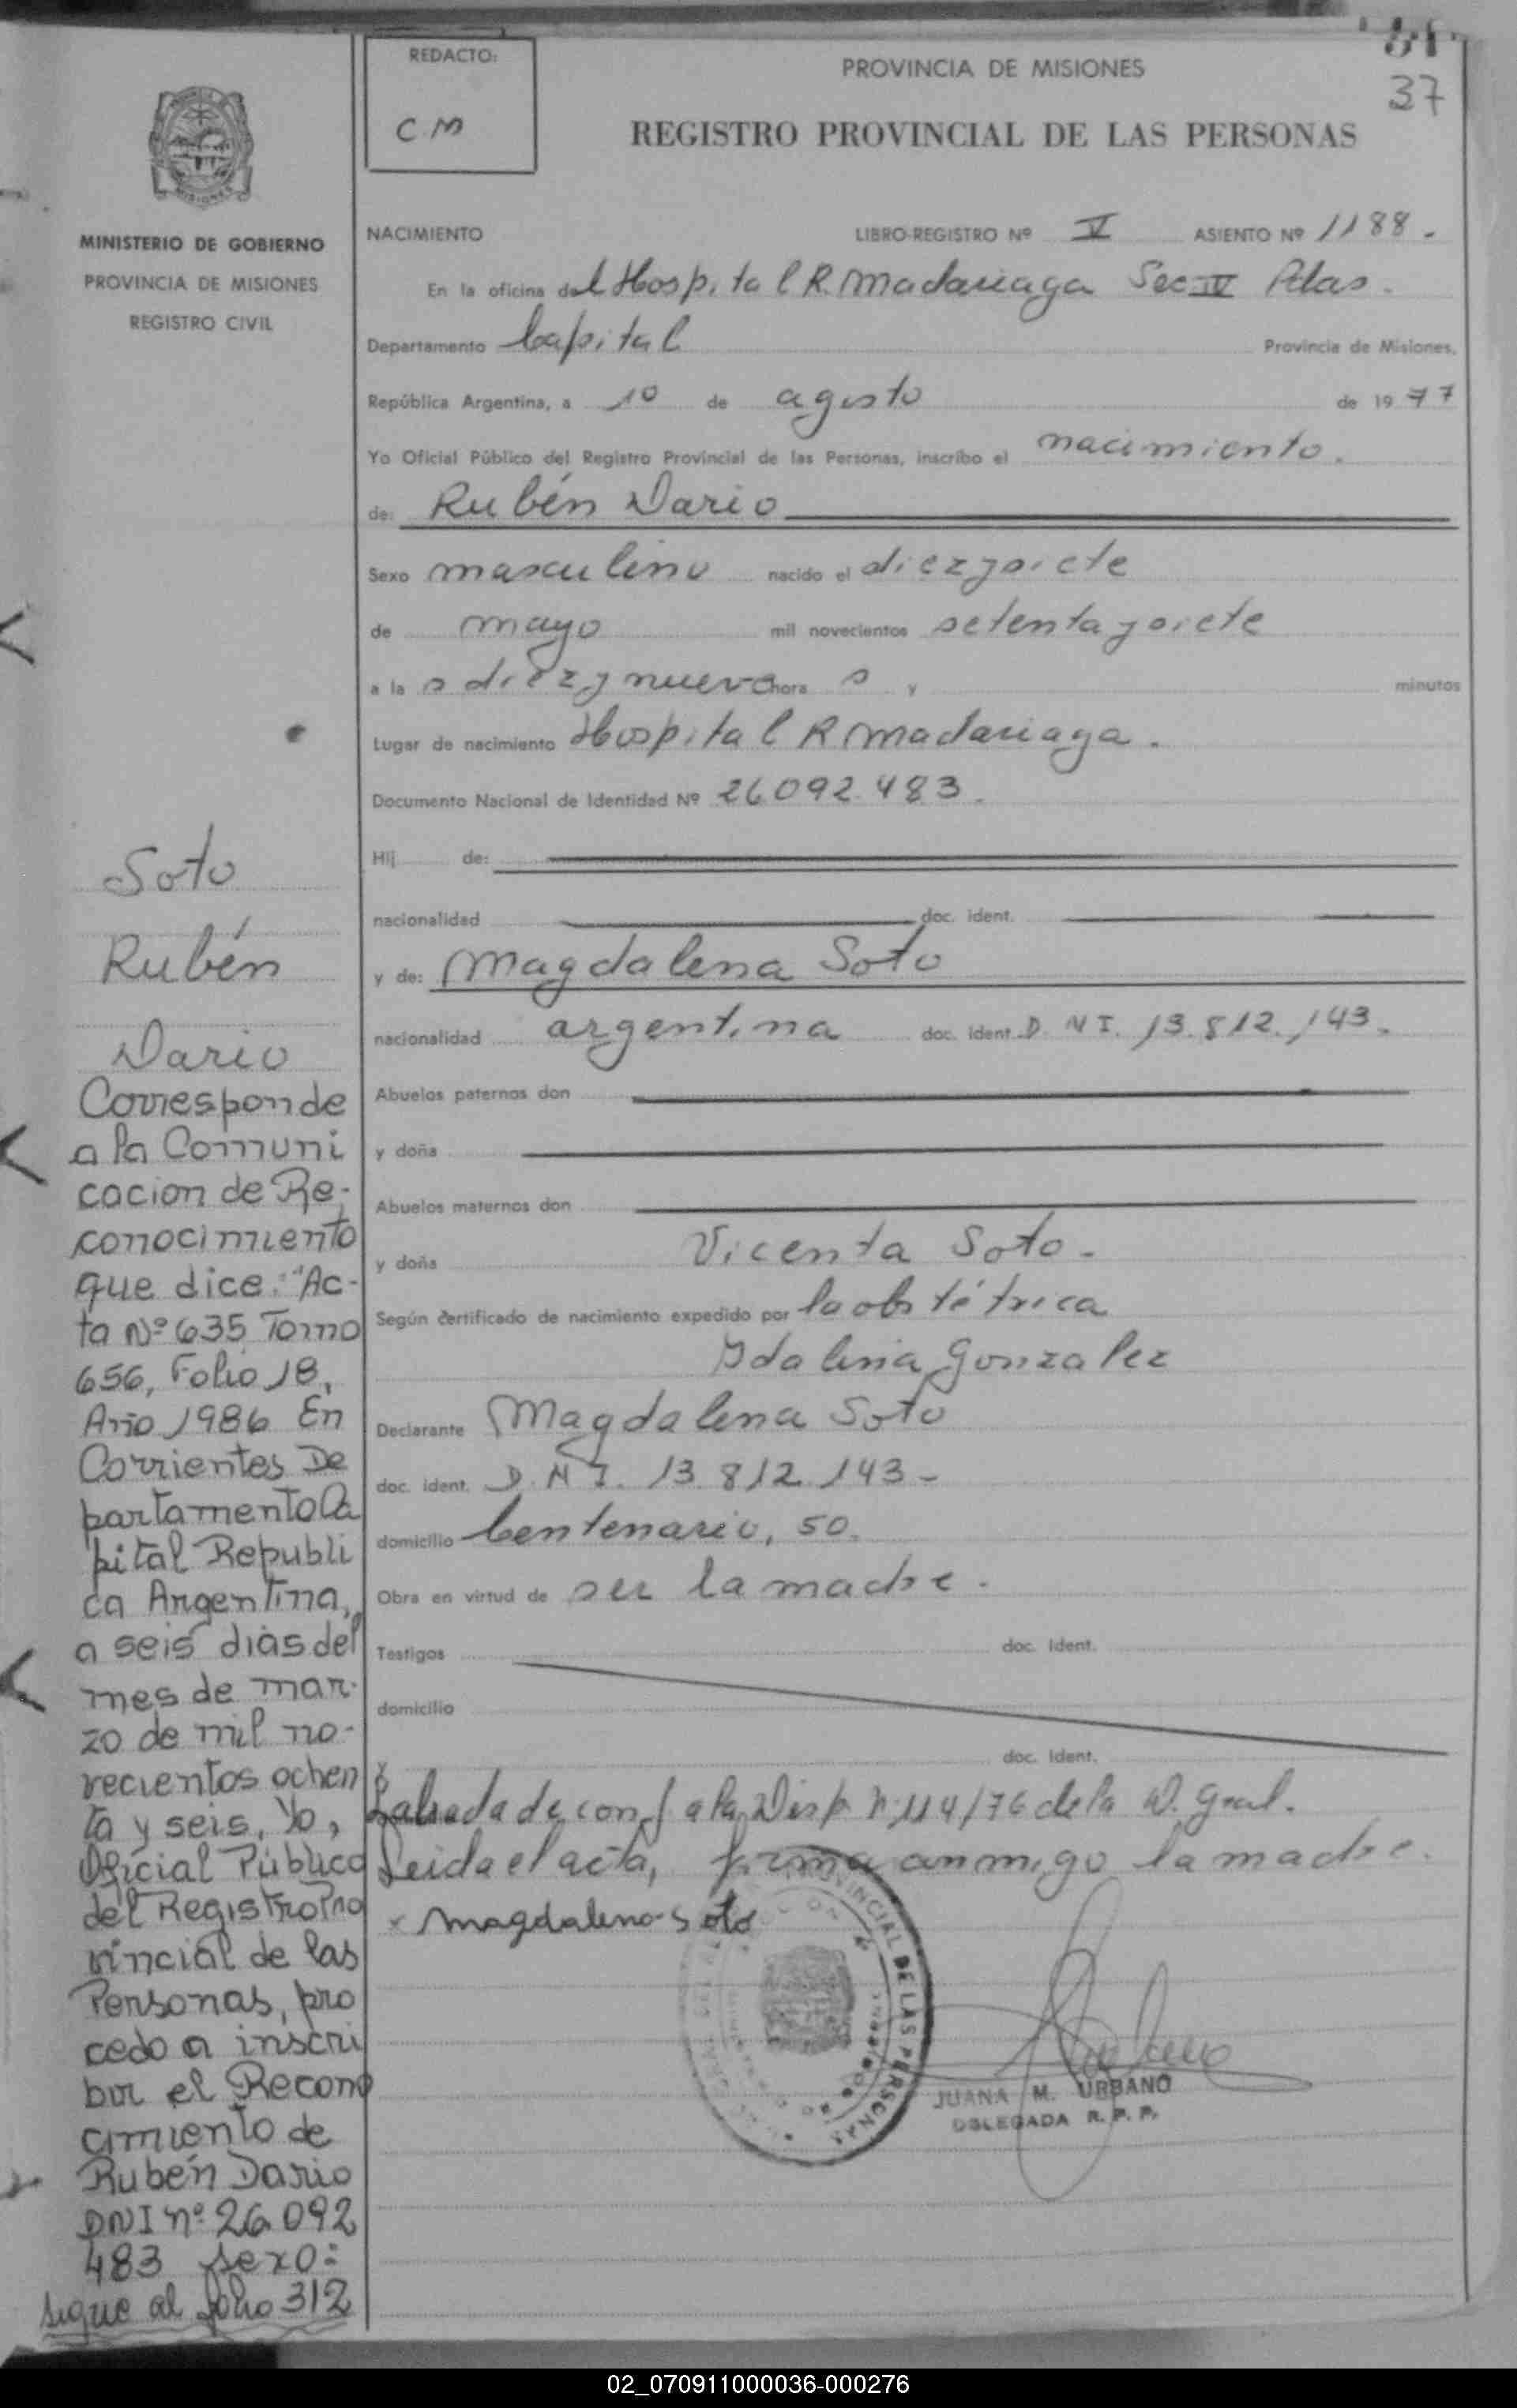 37
REDACTO:
CM
PROVINCIA DE MISIONES
REGISTRO PROVINCIAL DE LAS PERSONAS
MINISTERIO DE GOBIERNO
PROVINCIA DE MISIONES
REGISTRO CIVIL
NACIMIENTO LIBRO-REGISTRO Nº V ASIENTO Nº 1188.
En la oficina del Hospital R. Madariaga Sec IV Pdas.
Departamento Capital Provincia de Misiones,
República Argentina, a 10 de agosto de 1977
Yo Oficial Público del Registro Provincial de las Personas, inscribo el nacimiento.
de: Rubén Dario
Sexo masculino nacido el diezysiete
de mayo mil novecientos setentaysiete
a la s diezynueve hora s y minutos
Lugar de nacimiento Hospital R Madariaga.
Documento Nacional de Identidad Nº 26.092.483.
Hij de:
nacionalidad doc. ident.
y de: Magdalena Soto
nacionalidad argentina doc. ident. D.N.I. 13.812.143.
Abuelos paternos don
y doña
Abuelos maternos don
y doña Vicenta Soto.
Según certificado de nacimiento expedido por la obstétrica
Ydalina Gonzalez
Declarante Magdalena Soto
doc. ident. D.N.I. 13.812.143-
domicilio Centenario, 50.
Obra en virtud de ser la madre.
Testigos doc. Ident.
domicilio
y doc. Ident.
Labrada de conf a la Disp Nº 114/76 de la D. Gral.
Leida el acta, firma conmigo la madre.
x Magdalena Soto
PROVINCIAL DE LAS PERSONAS
JUANA M. URBANO
DELEGADA R. P. P.
Soto
Rubén
Dario
Corresponde
a la Comuni
cacion de Re-
conocimiento
que dice: "Ac-
ta Nº 635 Tomo
656, Folio 18,
Año 1986 En
Corrientes De
partamento Ca
pital Republi
ca Argentina,
a seis dias del
mes de mar-
zo de mil no-
vecientos ochen
ta y seis, Yo,
Oficial Público
del Registro Pro
vincial de las
Personas, pro
cedo a inscri
bir el Recono
cimiento de
Rubén Dario
DNI nº 26.092
483 sexo:
sigue al folio 312
02_070911000036-000276